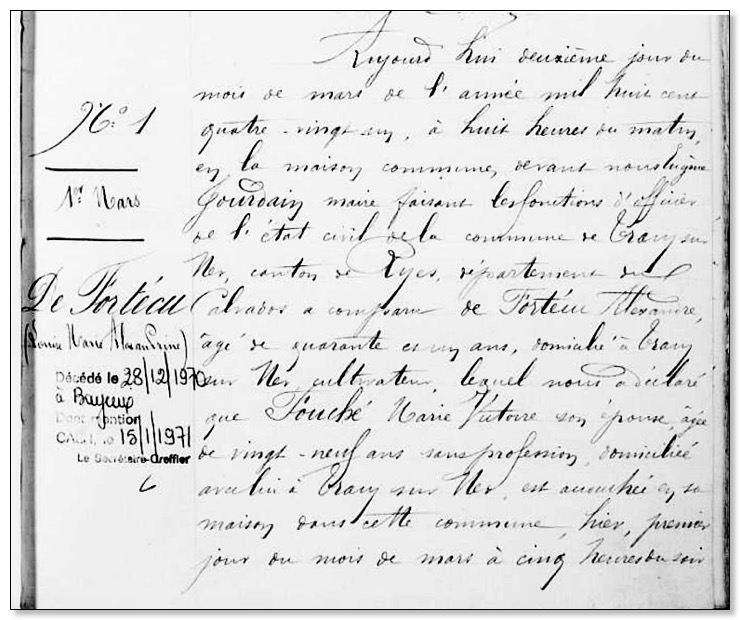 N.° 1
1er Mars
De Fortécu
(Louise Marie Alexandrine)
Décédé le 28/12/1970
à Bayeux
Dont mention
CAEN, le 15/1/1971
Le Secrétaire-Greffier
Aujourd'hui deuxième jour du
mois de mars de l'année mil huit cent
quatre-vingt-un, à huit heures du matin,
en la maison commune, devant nous Eugène
Gourdain maire faisant les fonctions d'officier
de l'état civil de la commune de Tracy sur
Mer, canton de Ryes, département du
Calvados a comparu de Fortécu Alexandre,
âgé de quarante et un ans, domicilié à Tracy
sur Mer, cultivateur, lequel nous a déclaré
que Fouché Marie Victoire son épouse, âgée
de vingt-neuf ans sans profession, domiciliée
avec lui à Tracy sur Mer, est accouchée en sa
maison dans cette commune, hier, premier
jour du mois de mars à cinq heures du soir